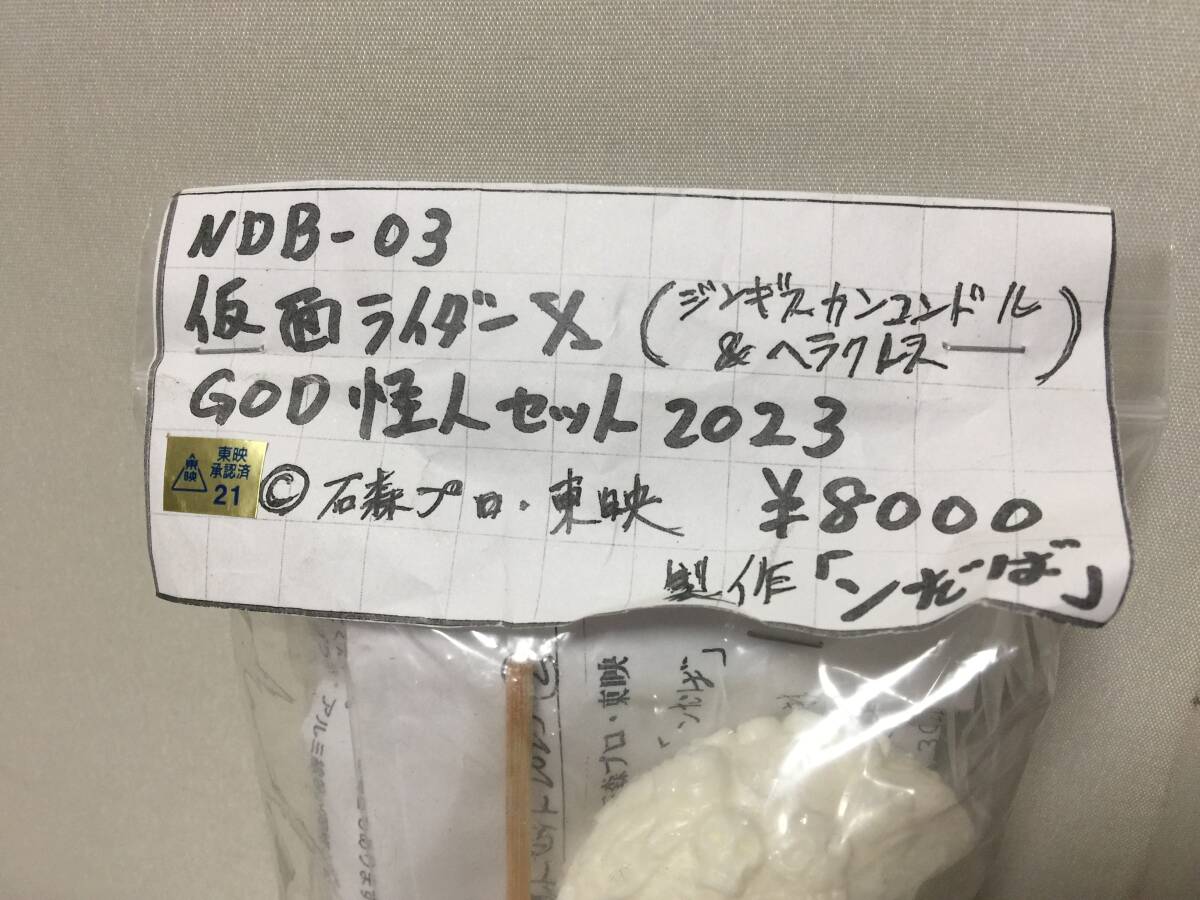 NDB-03
仮面ライダーX (ジンギスカンコンドル
&ヘラクレス)
GOD怪人セット2023
東映
東映
承認済
21
©石森プロ・東映 ¥8000
製作「ンだば」
森プロ・東映
アルミ